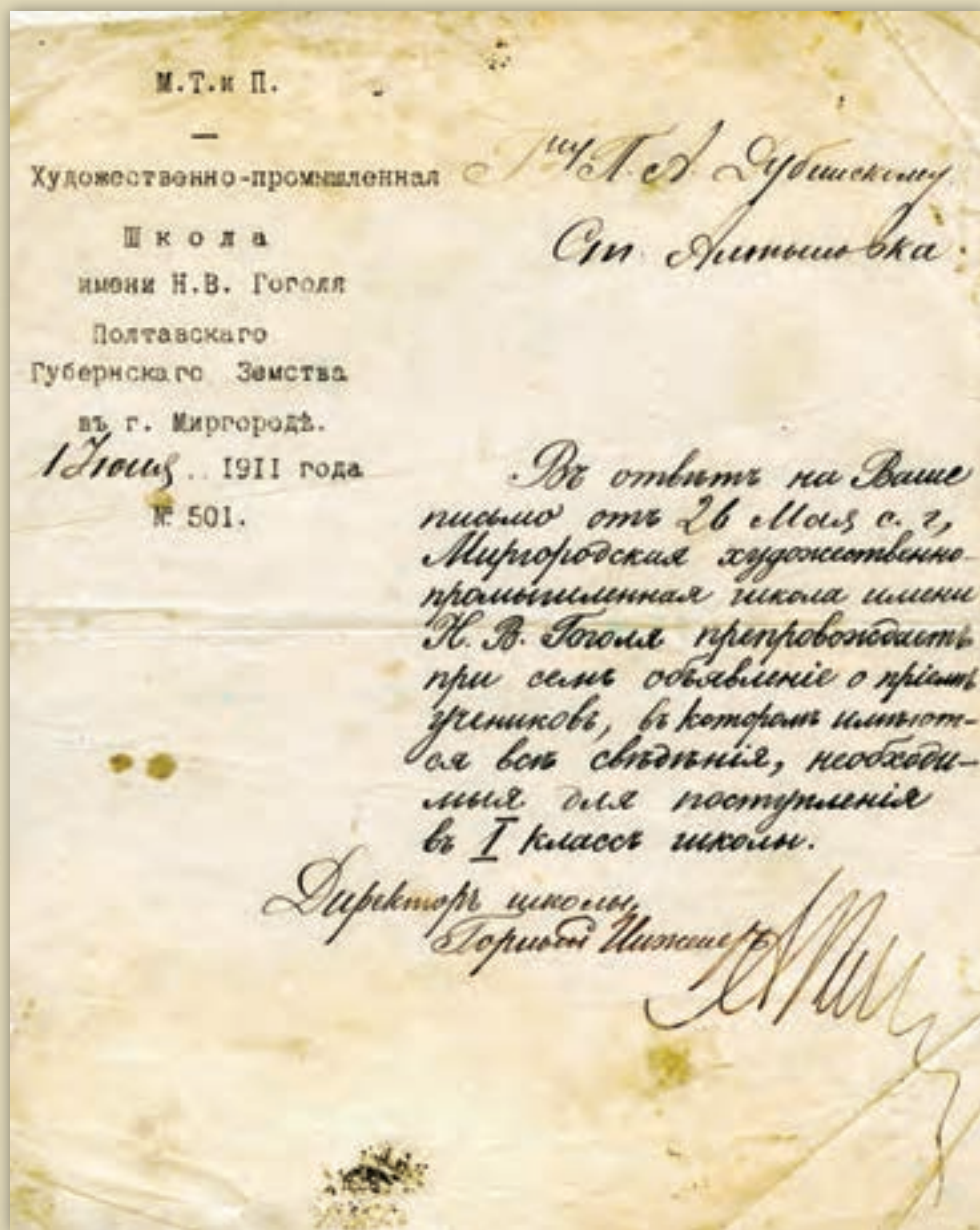 М.Т.и П.
—
Художественно-промышленная
Школа
имени Н.В. Гоголя
Полтавскаго
Губернскаго Земства
въ г. Миргородѣ.
1 Іюня 1911 года
№ 501.
Г-ну П. А. Дубинскому
Ст. Алтыновка
Въ отвѣтъ на Ваше
письмо отъ 26 Мая с. г,
Миргородская художественно-
промышленная школа имени
Н. В. Гоголя препровождаетъ
при семъ объявленіе о пріемѣ
учениковъ, въ которомъ имѣют-
ся всѣ свѣдѣнія, необходи-
мыя для поступленія
въ I классъ школы.
Директоръ школы,
Горный Инженеръ